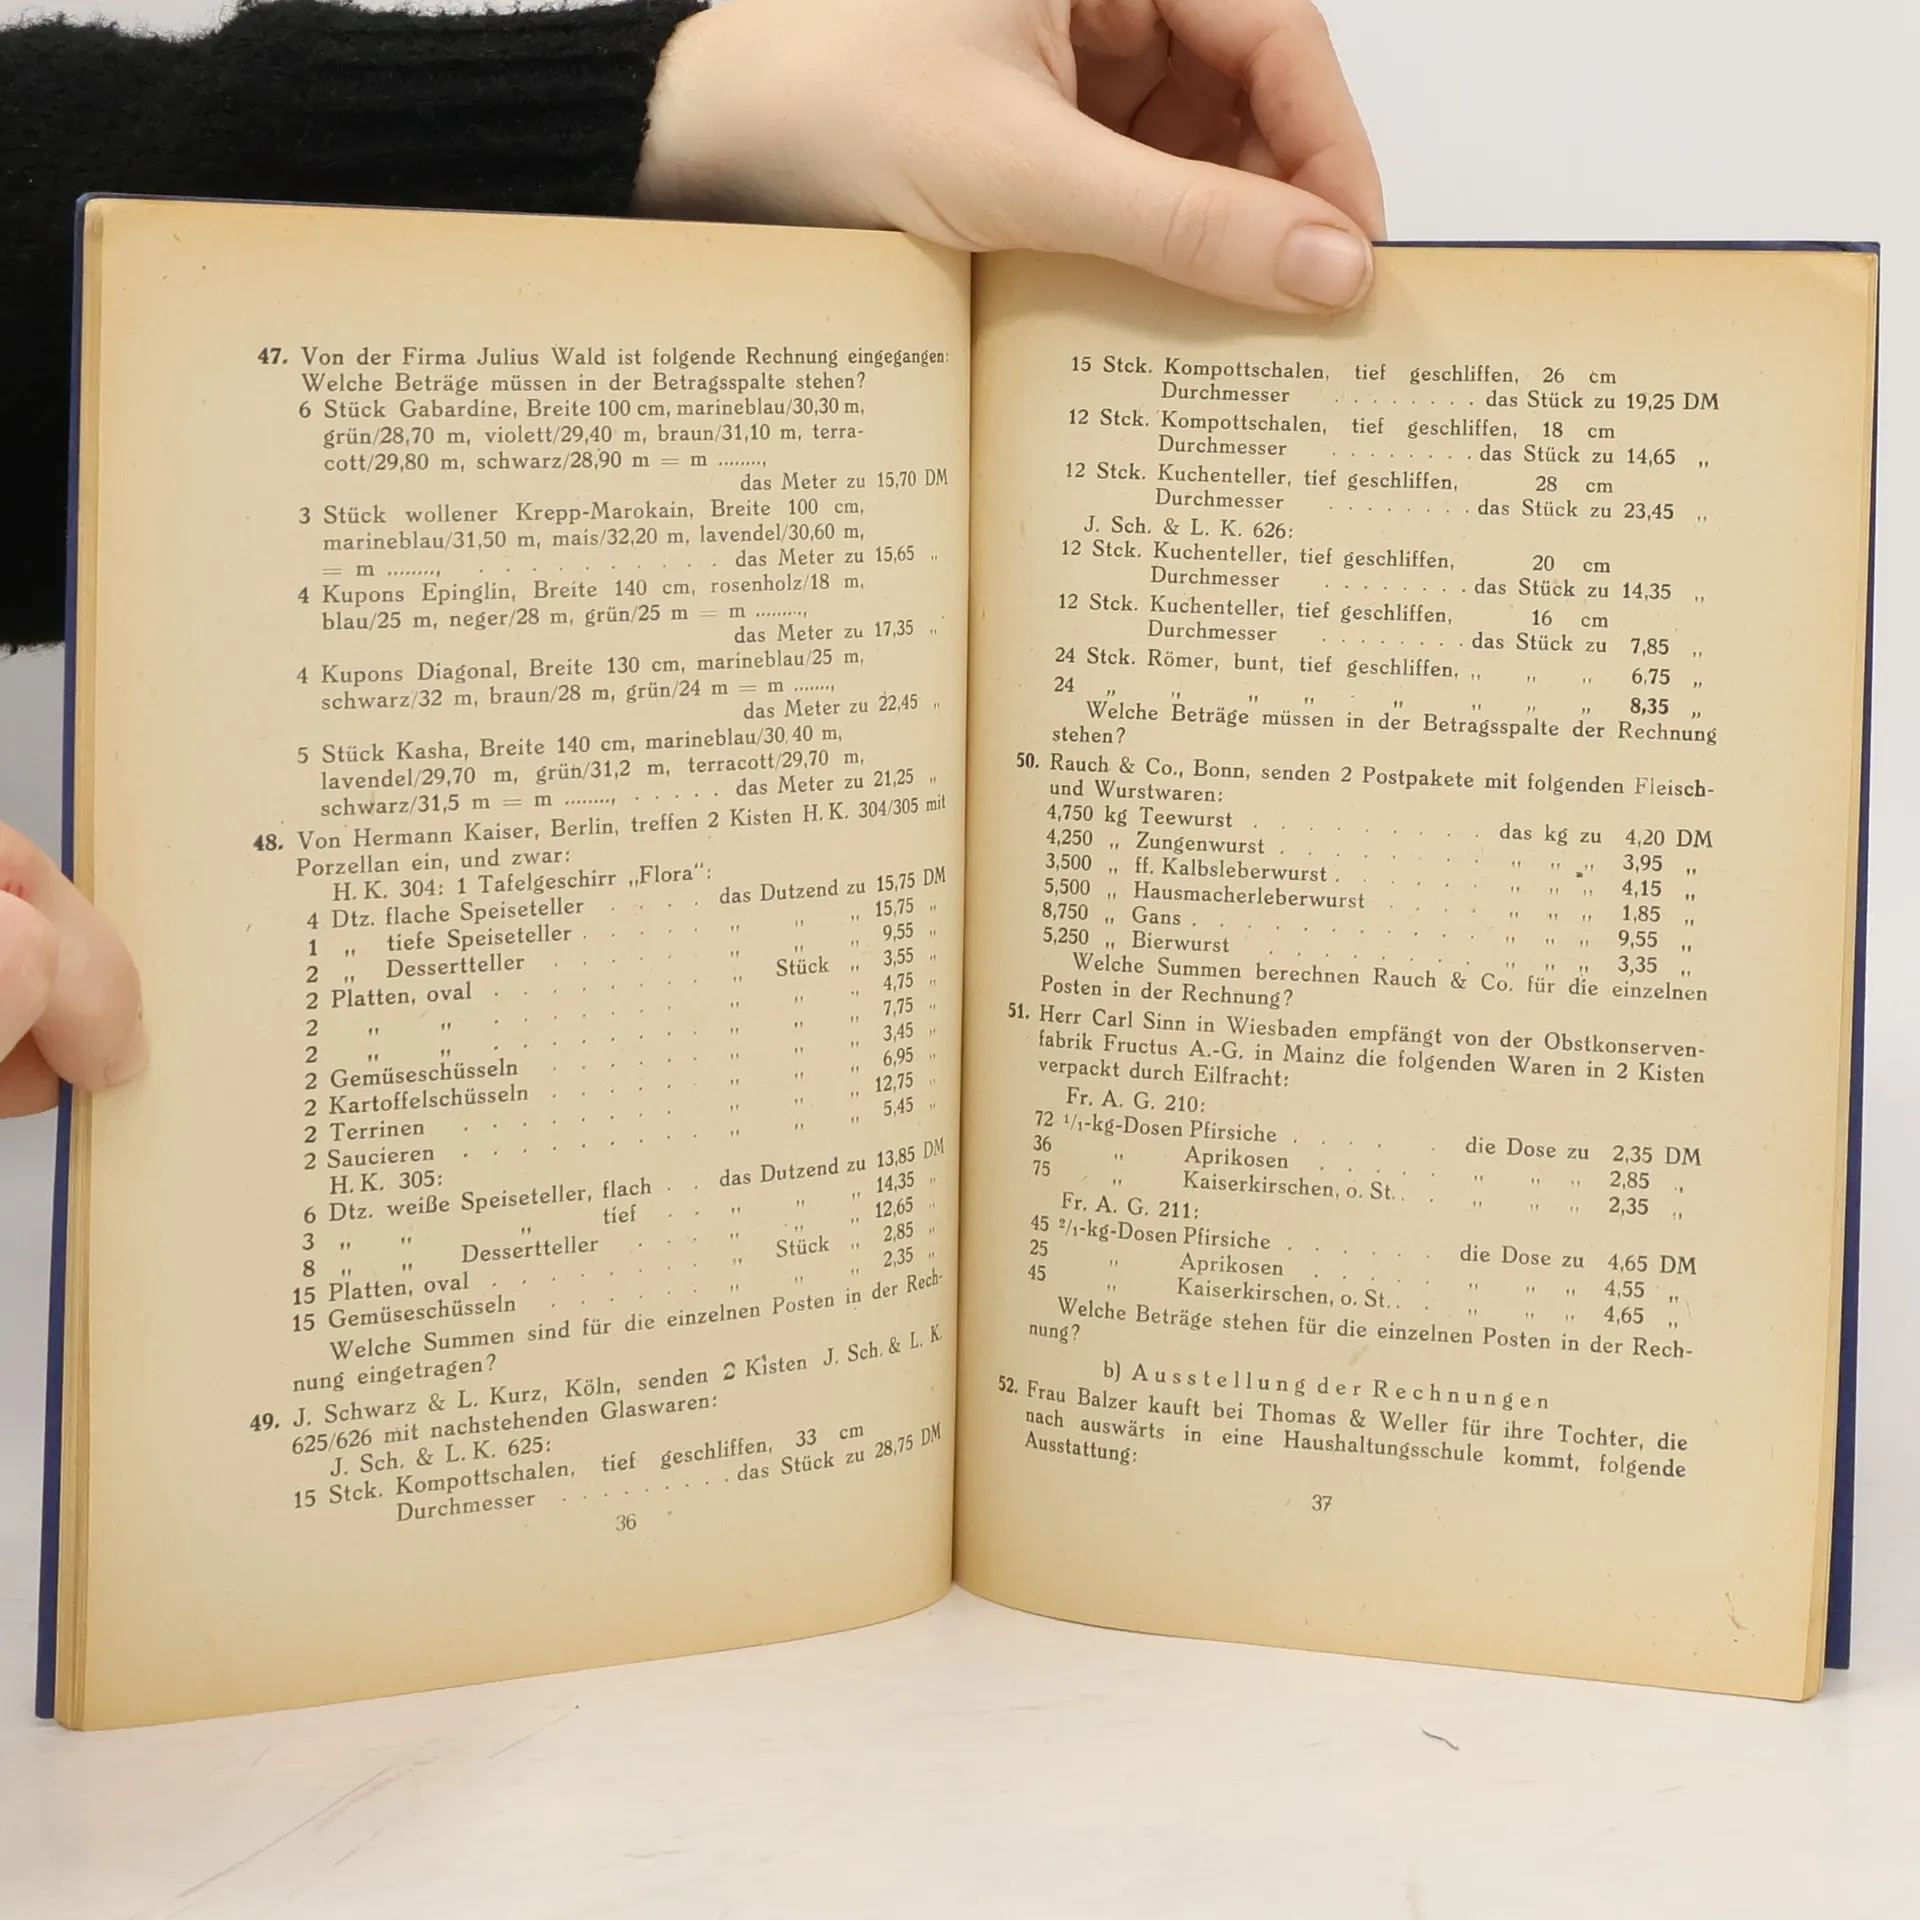 47. Von der Firma Julius Wald ist folgende Rechnung eingegangen:
Welche Beträge müssen in der Betragsspalte stehen?
6 Stück Gabardine, Breite 100 cm, marineblau/30,30 m,
grün/28,70 m, violett/29,40 m, braun/31,10 m, terra-
cott/29,80 m, schwarz/28,90 m = m ........,
das Meter zu 15,70 DM
3 Stück wollener Krepp-Marokain, Breite 100 cm,
marineblau/31,50 m, mais/32,20 m, lavendel/30,60 m,
= m ........, . . . . . . . . . . das Meter zu 15,65 „
4 Kupons Epinglin, Breite 140 cm, rosenholz/18 m,
blau/25 m, neger/28 m, grün/25 m = m ........,
das Meter zu 17,35 „
4 Kupons Diagonal, Breite 130 cm, marineblau/25 m,
schwarz/32 m, braun/28 m, grün/24 m = m ........,
das Meter zu 22,45 „
5 Stück Kasha, Breite 140 cm, marineblau/30,40 m,
lavendel/29,70 m, grün/31,2 m, terracott/29,70 m,
schwarz/31,5 m = m ........, . . . . . das Meter zu 21,25 „
48. Von Hermann Kaiser, Berlin, treffen 2 Kisten H. K. 304/305 mit
Porzellan ein, und zwar:
H. K. 304: 1 Tafelgeschirr „Flora“:
4 Dtz. flache Speiseteller . . . . das Dutzend zu 15,75 DM
1 „ tiefe Speiseteller . . . . . „ „ „ 15,75 „
2 „ Dessertteller . . . . . „ „ „ 9,55 „
2 Platten, oval . . . . . . . „ Stück „ 3,55 „
2 „ „ . . . . . . . „ „ „ 4,75 „
2 „ „ . . . . . . . „ „ „ 7,75 „
2 Gemüseschüsseln . . . . . . „ „ „ 3,45 „
2 Kartoffelschüsseln . . . . . . „ „ „ 6,95 „
2 Terrinen . . . . . . . . „ „ „ 12,75 „
2 Saucieren . . . . . . . . „ „ „ 5,45 „
H. K. 305:
6 Dtz. weiße Speiseteller, flach . . das Dutzend zu 13,85 DM
3 „ „ „ tief . . „ „ „ 14,35 „
8 „ „ Dessertteller . . . „ „ „ 12,65 „
15 Platten, oval . . . . . . . „ Stück „ 2,85 „
15 Gemüseschüsseln . . . . . . „ „ „ 2,35 „
Welche Summen sind für die einzelnen Posten in der Rech-
nung eingetragen?
49. J. Schwarz & L. Kurz, Köln, senden 2 Kisten J. Sch. & L. K.
625/626 mit nachstehenden Glaswaren:
J. Sch. & L. K. 625:
15 Stck. Kompottschalen, tief geschliffen, 33 cm
Durchmesser . . . . . . . . . das Stück zu 28,75 DM
36
15 Stck. Kompottschalen, tief geschliffen, 26 cm
Durchmesser . . . . . . . . das Stück zu 19,25 DM
12 Stck. Kompottschalen, tief geschliffen, 18 cm
Durchmesser . . . . . . . . das Stück zu 14,65 „
12 Stck. Kuchenteller, tief geschliffen, 28 cm
Durchmesser . . . . . . . . das Stück zu 23,45 „
J. Sch. & L. K. 626:
12 Stck. Kuchenteller, tief geschliffen, 20 cm
Durchmesser . . . . . . . . das Stück zu 14,35 „
12 Stck. Kuchenteller, tief geschliffen, 16 cm
Durchmesser . . . . . . . . das Stück zu 7,85 „
24 Stck. Römer, bunt, tief geschliffen, „ „ „ 6,75 „
24 „ „ „ „ „ „ „ „ 8,35 „
Welche Beträge müssen in der Betragsspalte der Rechnung
stehen?
50. Rauch & Co., Bonn, senden 2 Postpakete mit folgenden Fleisch-
und Wurstwaren:
4,750 kg Teewurst . . . . . . . . . das kg zu 4,20 DM
4,250 „ Zungenwurst . . . . . . . . „ „ „ 3,95 „
3,500 „ ff. Kalbsleberwurst . . . . . . „ „ „ 4,15 „
5,500 „ Hausmacherleberwurst . . . . . „ „ „ 1,85 „
8,750 „ Gans . . . . . . . . . . . „ „ „ 9,55 „
5,250 „ Bierwurst . . . . . . . . . „ „ „ 3,35 „
Welche Summen berechnen Rauch & Co. für die einzelnen
Posten in der Rechnung?
51. Herr Carl Sinn in Wiesbaden empfängt von der Obstkonserven-
fabrik Fructus A.-G. in Mainz die folgenden Waren in 2 Kisten
verpackt durch Eilfracht:
Fr. A. G. 210:
72 1/1-kg-Dosen Pfirsiche . . . . . die Dose zu 2,35 DM
36 „ Aprikosen . . . . . „ „ „ 2,85 „
75 „ Kaiserkirschen, o. St. . . „ „ „ 2,35 „
Fr. A. G. 211:
45 2/1-kg-Dosen Pfirsiche . . . . . . die Dose zu 4,65 DM
25 „ Aprikosen . . . . . „ „ „ 4,55 „
45 „ Kaiserkirschen, o. St. . . „ „ „ 4,65 „
Welche Beträge stehen für die einzelnen Posten in der Rech-
nung?
b) Ausstellung der Rechnungen
52. Frau Balzer kauft bei Thomas & Weller für ihre Tochter, die
nach auswärts in eine Haushaltungsschule kommt, folgende
Ausstattung:
37